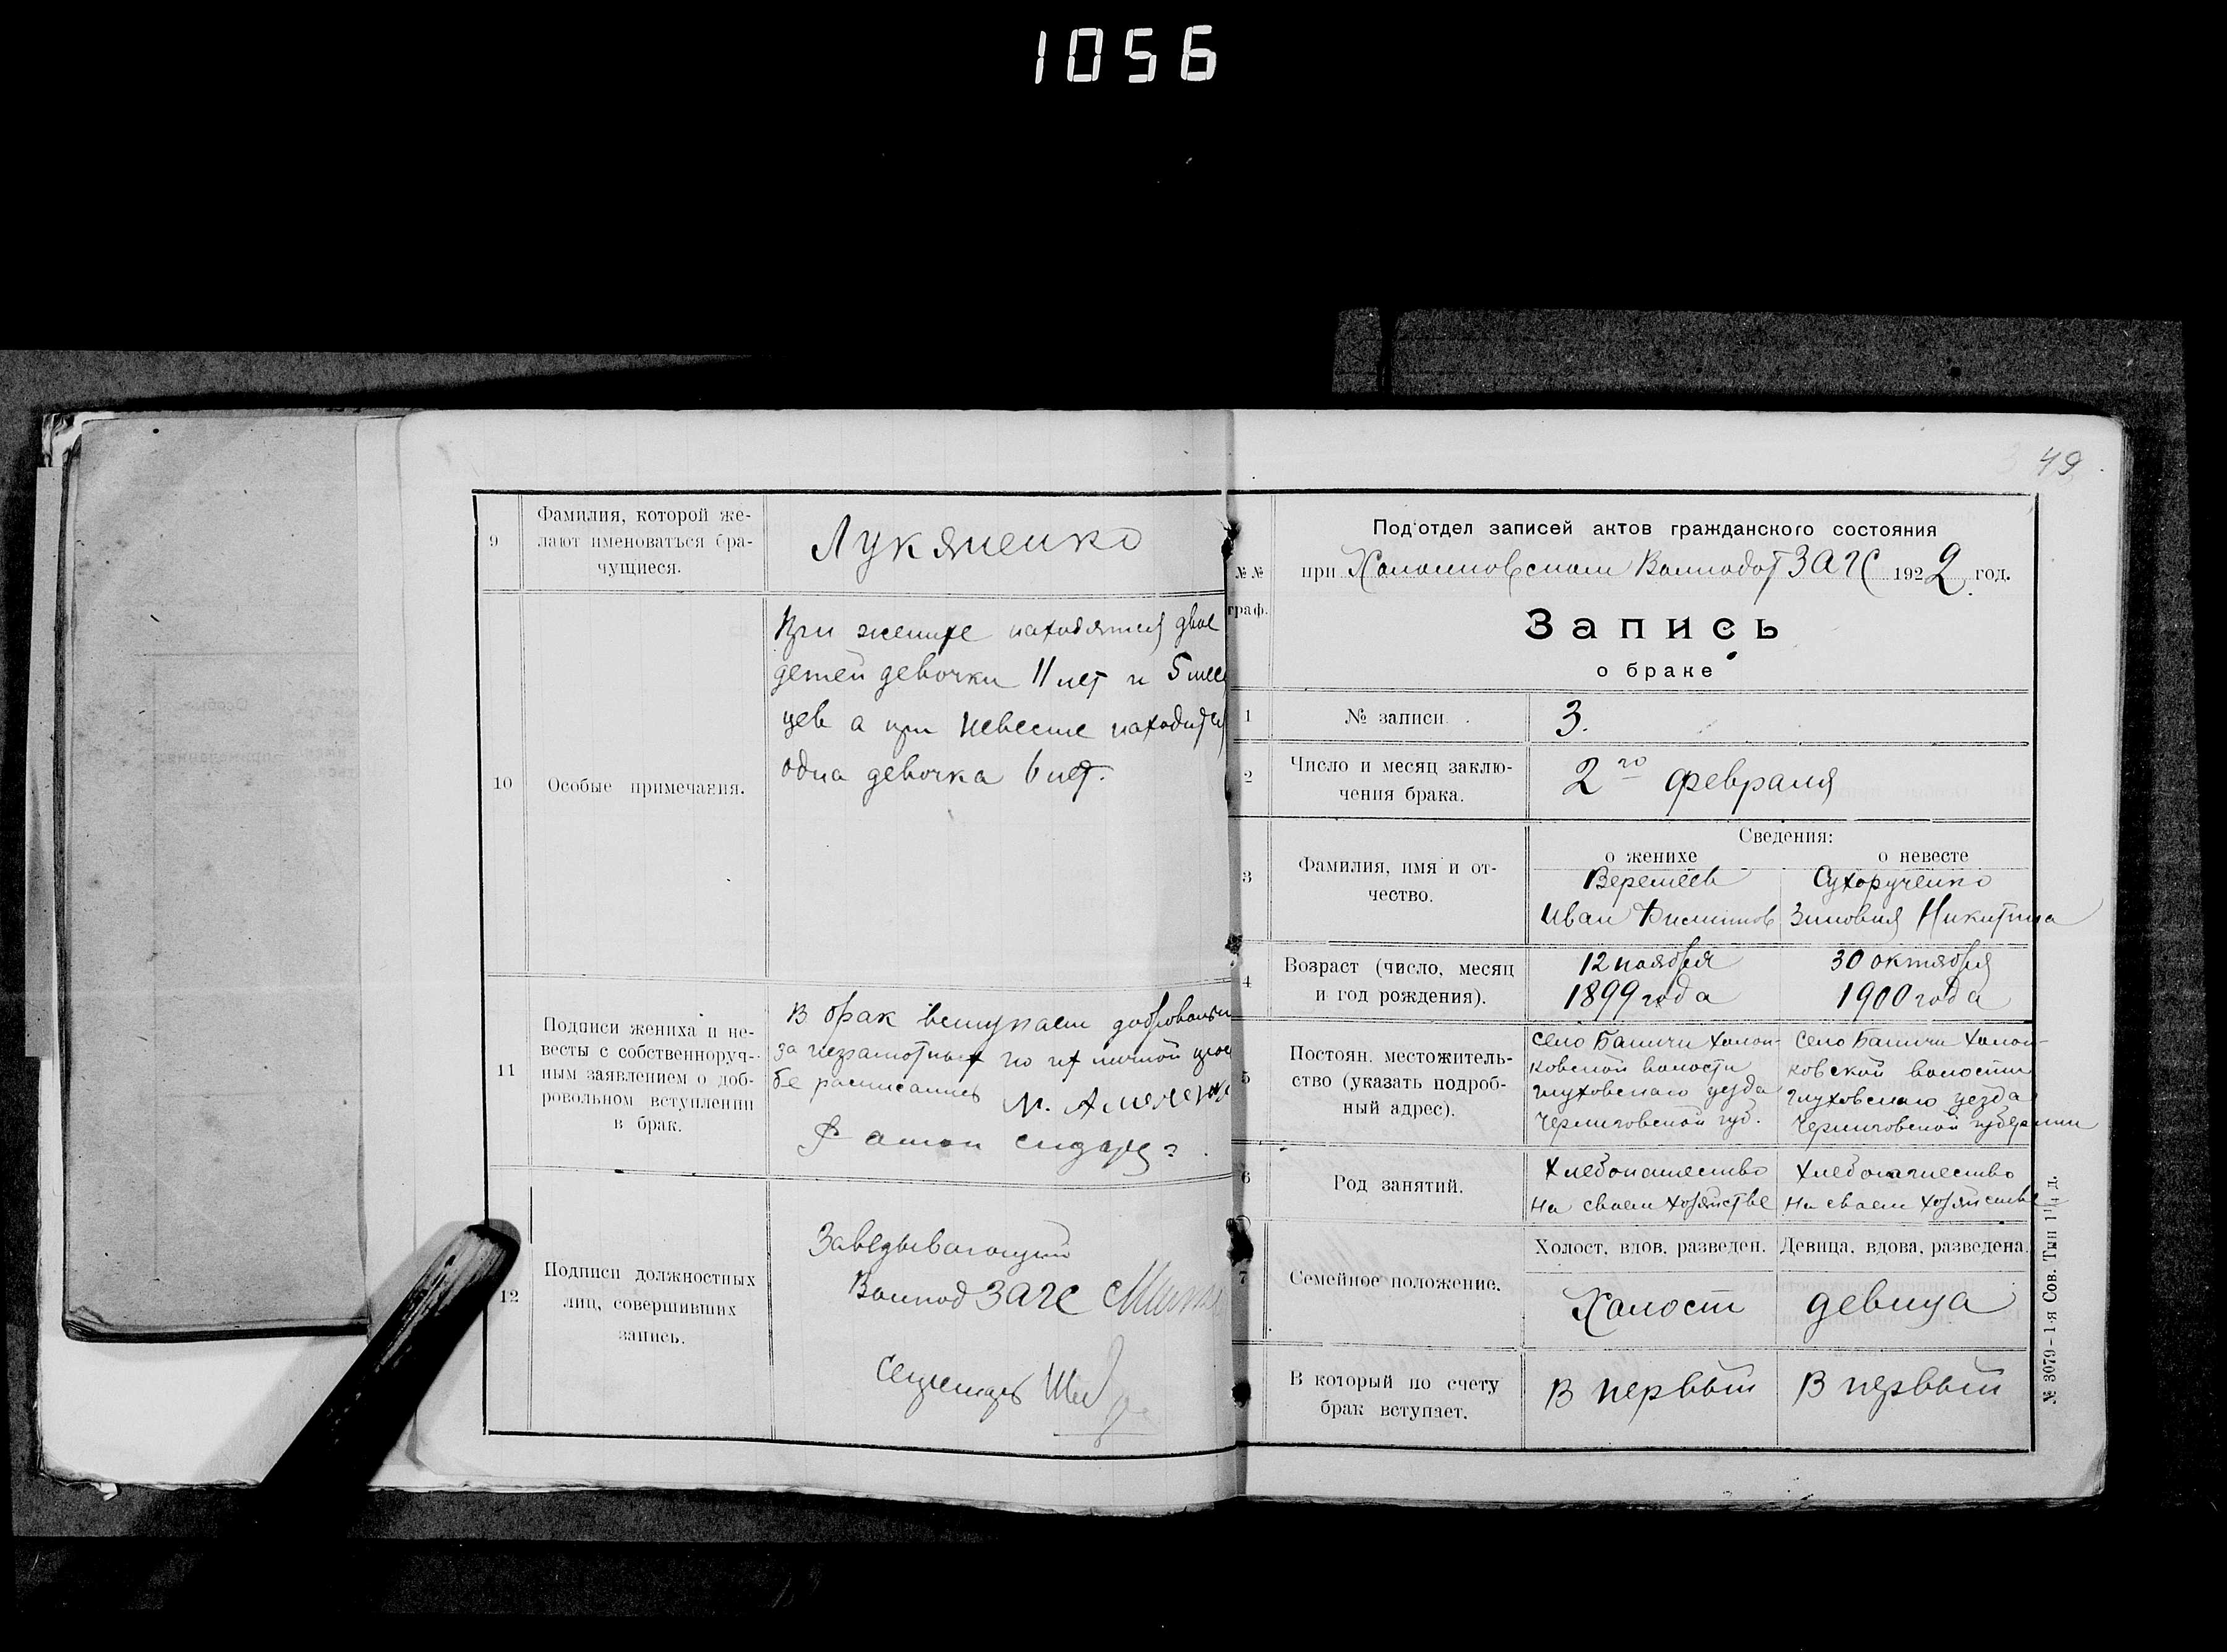 1056
9
Фамилия, которой же-
лают именоваться бра-
чущиеся.
Лукяненко
10
Особые примечания.
При женихе находятся двое
детей девочки 11 лет и 5 меся
цев а при невесте находится
одна девочка 6 лет.
11
Подписи жениха и не-
весты с собственноруч-
ным заявлением о доб-
ровольном вступлении
в брак.
В брак вступаем добровольн
за неграмотных по их личной прос
бе расписались М.
12
Подписи должностных
лиц, совершивших
запись.
Заведывающий
Волпод ЗАГС
Секретарь
49
№№
граф.
Подотдел записей актов гражданского состояния
при Волподот ЗАГС 1922 год.
Запись
о браке
1
№ записи.
3.
2
Число и месяц заклю-
чения брака.
2го февраля
Сведения:
о женихе
о невесте
3
Фамилия, имя и от-
чество.
Веремеев
Иван Филиппов
Сухорученко
Зиновия Никитина
4
Возраст (число, месяц
и год рождения).
12 ноября
1899 года
30 октября
1900 года
5
Постоян. местожитель-
ство (указать подроб-
ный адрес).
Село Баничи Холоп-
ковской волости
Глуховского уезда
Черниговской губ.
Село Баничи Холоп-
ковской волости
Глуховского уезда
Черниговской губернии
6
Род занятий.
Хлебопашество
на своем хозяйстве
Хлебопашество
на своем хозяйстве
7
Семейное положение.
Холост, вдов, разведен.
Девица, вдова, разведена.
Холост
девица
В который по счету
брак вступает.
В первый
В первый
№ 3079-1-я Сов. Тип 1